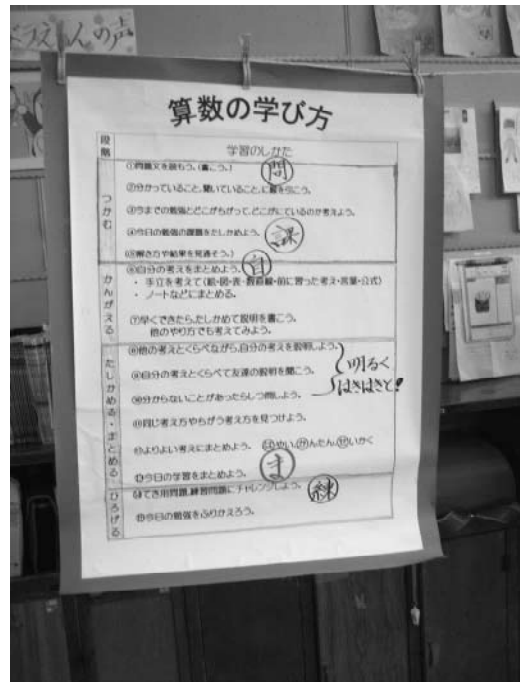 の声
算数の学び方
段階
学習のしかた
つかむ
①問題文を読もう。(書こう。)
問
②分かっていること、聞いていることに線を引こう。
③今までの勉強とどこがちがって、どこがにているのか考えよう。
④今日の勉強の課題をたしかめよう。
課
⑤解き方や結果を見通そう。)
自
かんがえる
⑥自分の考えをまとめよう。
・手立を考えて(絵・図・表・数直線・前に習った考え・言葉・公式)
・ノートなどにまとめる。
⑦早くできたら、たしかめて説明を書こう。
他のやり方でも考えてみよう。
たしかめる・まとめる
⑧他の考えとくらべながら、自分の考えを説明しよう。
⑨自分の考えとくらべて友達の説明を聞こう。
⑩分からないことがあったらしつ問しよう。
明るく
はきはきと!
⑪同じ考え方やちがう考え方を見つけよう。
⑫よりよい考えにまとめよう。 はやい,かんたん,せいかく
⑬今日の学習をまとめよう。
ま
ひろげる
⑭てき用問題、練習問題にチャレンジしよう。
練
⑮今日の勉強をふりかえろう。